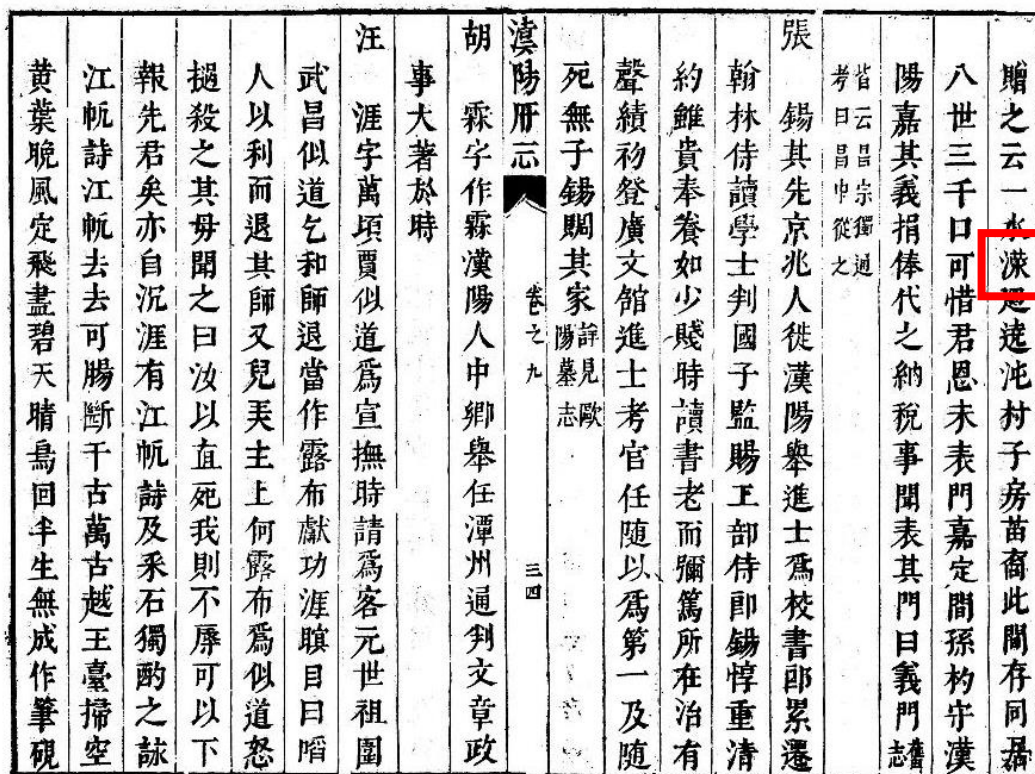 贈之云一水廻遶沱村子房苗裔此閒存同居
八世三千口可惜君恩未表門嘉定間孫杓守漢
陽嘉其義捐俸代之納稅事聞表其門曰義門舊志
皆云昌宗獨通
考曰昌中從之
張
錫其先京兆人徙漢陽舉進士爲校書郎累遷
翰林侍讀學士判國子監賜工部侍郎錫惇重清
約雖貴奉養如少賤時讀書老而彌篤所在治有
聲績初登廣文館進士考官任隨以爲第一及隨
死無子錫賙其家詳見歐陽墓志
漢陽府志 卷之九 三四
胡
霖字作霖漢陽人中鄉舉任潭州通判文章政
事大著於時
汪
涯字萬頃賈似道爲宣撫時請爲客元世祖圍
武昌似道乞和師退當作露布獻功涯瞋目曰啗
人以利而退其師又兒美主上何露布爲似道怒
撾殺之其母聞之曰汝以直死我則不辱可以下
報先君矣亦自沉涯有江帆詩及釆石獨酌之詠
江帆詩江帆去去可腸斷千古萬古越王臺掃空
黄葉晚風定飛盡碧天晴鳥回半生無成作筆硯